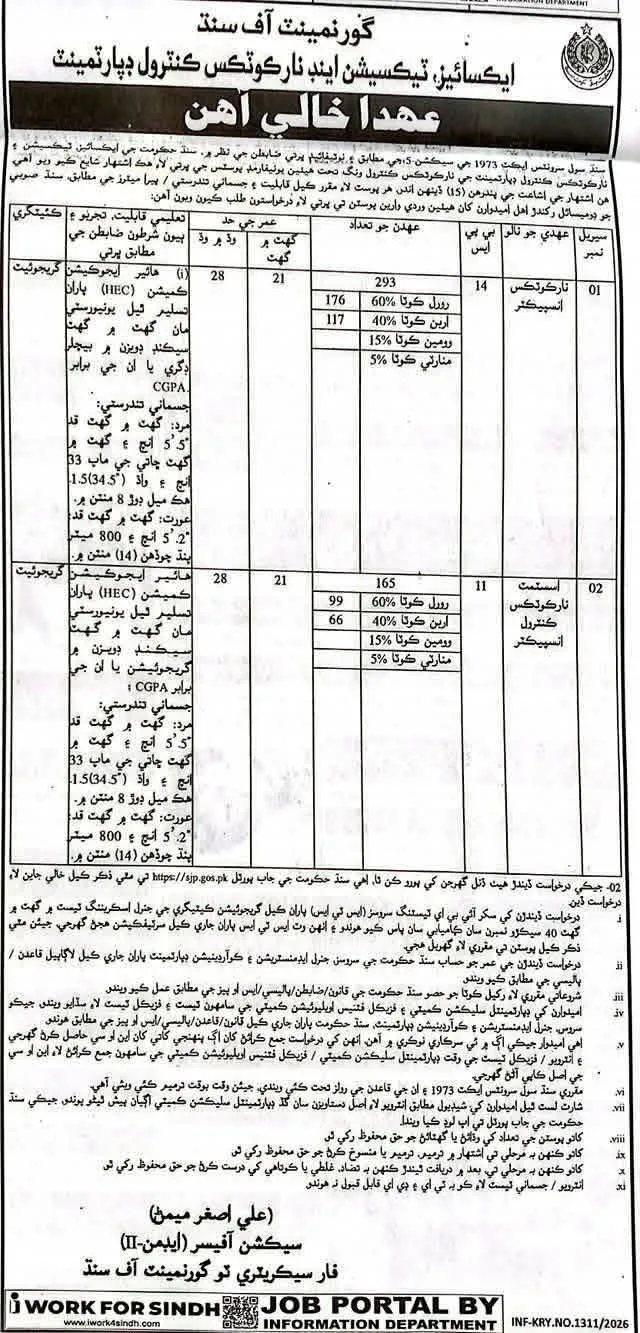 INFORMATION DEPARTMENT
گورنمينٽ آف سنڌ
ايڪسائيز، ٽيڪسيشن اينڊ نارڪوٽڪس ڪنٽرول ڊپارٽمينٽ
عهدا خالي آهن
سنڌ سول سرونٽس ايڪٽ 1973 جي سيڪشن-5، جي مطابق ۽ نوٽيفائيڊ ڀرتي ضابطن جي نظر ۾، سنڌ حڪومت جي ايڪسائيز، ٽيڪسيشن ۽
نارڪوٽڪس ڪنٽرول ڊپارٽمينٽ جي نارڪوٽڪس ڪنٽرول ونگ تحت هيٺين يونيفارمڊ پوسٽس جي ڀرتي لاءِ هڪ اشتهار شايع ڪيو ويو آهي
هن اشتهار جي اشاعت جي پندرهن (15) ڏينهن اندر هر پوسٽ لاءِ مقرر ڪيل قابليت ۽ جسماني تندرستي / پيراميٽرز جي مطابق، سنڌ صوبي
جو ڊوميسائل رکندڙ اهل اميدوارن کان هيٺين وردي وارين پوسٽن تي ڀرتي لاءِ درخواستون طلب ڪيون ويون آهن:
سيريل نمبر
عهدي جو نالو
بي پي ايس
عهدن جو تعداد
عمر جي حد
گهٽ ۾ گهٽ
وڌ ۾ وڌ
تعليمي قابليت، تجربو ۽ ٻيون شرطون ضابطن جي مطابق ڀرتي
ڪيٽيگري
01
نارڪوٽڪس انسپيڪٽر
14
293
رورل ڪوٽا 60%
176
اربن ڪوٽا 40%
117
وومين ڪوٽا 15%
منارٽي ڪوٽا 5%
21
28
(i) هائير ايجوڪيشن
ڪميشن (HEC) پاران
تسليم ٿيل يونيورسٽي
مان گهٽ ۾ گهٽ
سيڪنڊ ڊويزن ۾ بيچلر
ڊگري يا ان جي برابر
CGPA.
جسماني تندرستي:
مرد: گهٽ ۾ گهٽ قد
5'.5" انچ ۽ گهٽ ۾
گهٽ ڇاتي جي ماپ 33
انچ ۽ واڌ (34.5")1.5.
هڪ ميل ڊوڙ 8 منٽن ۾.
عورت: گهٽ ۾ گهٽ قد:
5'.2" انچ ۽ 800 ميٽر
پنڌ چوڏهن (14) منٽن ۾.
گريجوئيٽ
02
اسسٽنٽ نارڪوٽڪس ڪنٽرول انسپيڪٽر
11
165
رورل ڪوٽا 60%
99
اربن ڪوٽا 40%
66
وومين ڪوٽا 15%
منارٽي ڪوٽا 5%
21
28
هائير ايجوڪيشن
ڪميشن (HEC) پاران
تسليم ٿيل يونيورسٽي
مان گهٽ ۾ گهٽ
سيڪنڊ ڊويزن ۾
گريجوئيشن يا ان جي
برابر CGPA ؛
جسماني تندرستي:
مرد: گهٽ ۾ گهٽ قد
5'.5" انچ ۽ گهٽ ۾
گهٽ ڇاتي جي ماپ 33
انچ ۽ واڌ (34.5")1.5.
هڪ ميل ڊوڙ 8 منٽن ۾.
عورت: گهٽ ۾ گهٽ قد:
5'.2" انچ ۽ 800 ميٽر
پنڌ چوڏهن (14) منٽن ۾.
گريجوئيٽ
02- جيڪي درخواست ڏيندڙ هيٺ ڏنل گهرجن کي پورو ڪن ٿا، اهي سنڌ حڪومت جي جاب پورٽل https://sjp.gos.pk تي مٿي ذڪر ڪيل خالي جاين لاءِ
درخواست ڏين.
i. درخواست ڏيندڙن کي سکر آئي بي اي ٽيسٽنگ سروسز (ايس ٽي ايس) پاران ڪيل گريجوئيشن ڪيٽيگري جي جنرل اسڪريننگ ٽيسٽ ۾ گهٽ ۾
گهٽ 40 سيڪڙو نمبرن سان ڪاميابي سان پاس ڪيو هوندو ۽ انهن وٽ ايس ٽي ايس پاران جاري ڪيل سرٽيفڪيشن هجڻ گهرجي، جيئن مٿي
ذڪر ڪيل پوسٽن تي مقرري لاءِ گهربل هجي.
ii. درخواست ڏيندڙن جي عمر جو حساب سنڌ حڪومت جي سروسز جنرل ايڊمنسٽريشن ۽ ڪوآرڊينيشن ڊپارٽمينٽ پاران جاري ڪيل لاڳاپيل قاعدن /
پاليسي جي مطابق ڪيو ويندو
iii. شروعاتي مقرري لاءِ رکيل ڪوٽا جو حصو سنڌ حڪومت جي قانون/ضابطن/پاليسي/ايس او پيز جي مطابق عمل ڪيو ويندو
iv. اميدوارن کي ڊپارٽمينٽل سليڪشن ڪميٽي ۽ فزيڪل فٽنيس اويليوئيشن ڪميٽي جي سامهون ٽيسٽ ۽ فزيڪل ٽيسٽ لاءِ سڏايو ويندو، جيڪو
سروس، جنرل ايڊمنسٽريشن ۽ ڪوآرڊينيشن ڊپارٽمينٽ، سنڌ حڪومت پاران جاري ڪيل قانون/قاعدن/پاليسي/ايس او پيز جي مطابق هوندو
v. اهي اميدوار جيڪي اڳ ۾ ئي سرڪاري نوڪري ۾ آهن، انهن کي درخواست جمع ڪرائڻ کان اڳ پنهنجي کاتي کان اين او سي حاصل ڪرڻ گهرجي
۽ انٽرويو / فزيڪل ٽيسٽ جي وقت ڊپارٽمينٽل سليڪشن ڪميٽي / فزيڪل فٽنيس اويليوئيشن ڪميٽي جي سامهون جمع ڪرائڻ لاءِ اين او سي
جي اصل ڪاپي آڻڻ گهرجي.
vi. مقرري سنڌ سول سرونٽس ايڪٽ 1973 ۽ ان جي قاعدن جي رولز تحت ڪئي ويندي، جيئن وقت بوقت ترميم ڪئي ويئي آهي.
vii. شارٽ لسٽ ٿيل اميدوارن کي، شيڊيول مطابق انٽرويو لاءِ اصل دستاويزن سان گڏ ڊپارٽمينٽل سليڪشن ڪميٽي اڳيان پيش ٿيڻو پوندو، جيڪي سنڌ
حڪومت جي جاب پورٽل تي اپ لوڊ ڪيا ويندا.
viii. کاتو پوسٽن جي تعداد کي وڌائڻ يا گهٽائڻ جو حق محفوظ رکي ٿو.
ix. کاتو ڪنهن به مرحلي تي اشتهار ۾ ترميم، ترميم يا منسوخ ڪرڻ جو حق محفوظ رکي ٿو.
x. کاتو ڪنهن به مرحلي تي، بعد ۾ دريافت ٿيندڙ ڪنهن به تضاد، غلطي يا ڪوتاهي کي درست ڪرڻ جو حق محفوظ رکي ٿو.
xi. انٽرويو / جسماني ٽيسٽ لاءِ ڪو به ٽي اي ۽ ڊي اي قابل قبول نه هوندو
(علي اصغر ميمڻ)
سيڪشن آفيسر (ايڊمن-II)
فار سيڪريٽري ٽو گورنمينٽ آف سنڌ
i WORK FOR SINDH
www.iwork4sindh.com
JOB PORTAL BY
INFORMATION DEPARTMENT
INF-KRY.NO.1311/2026